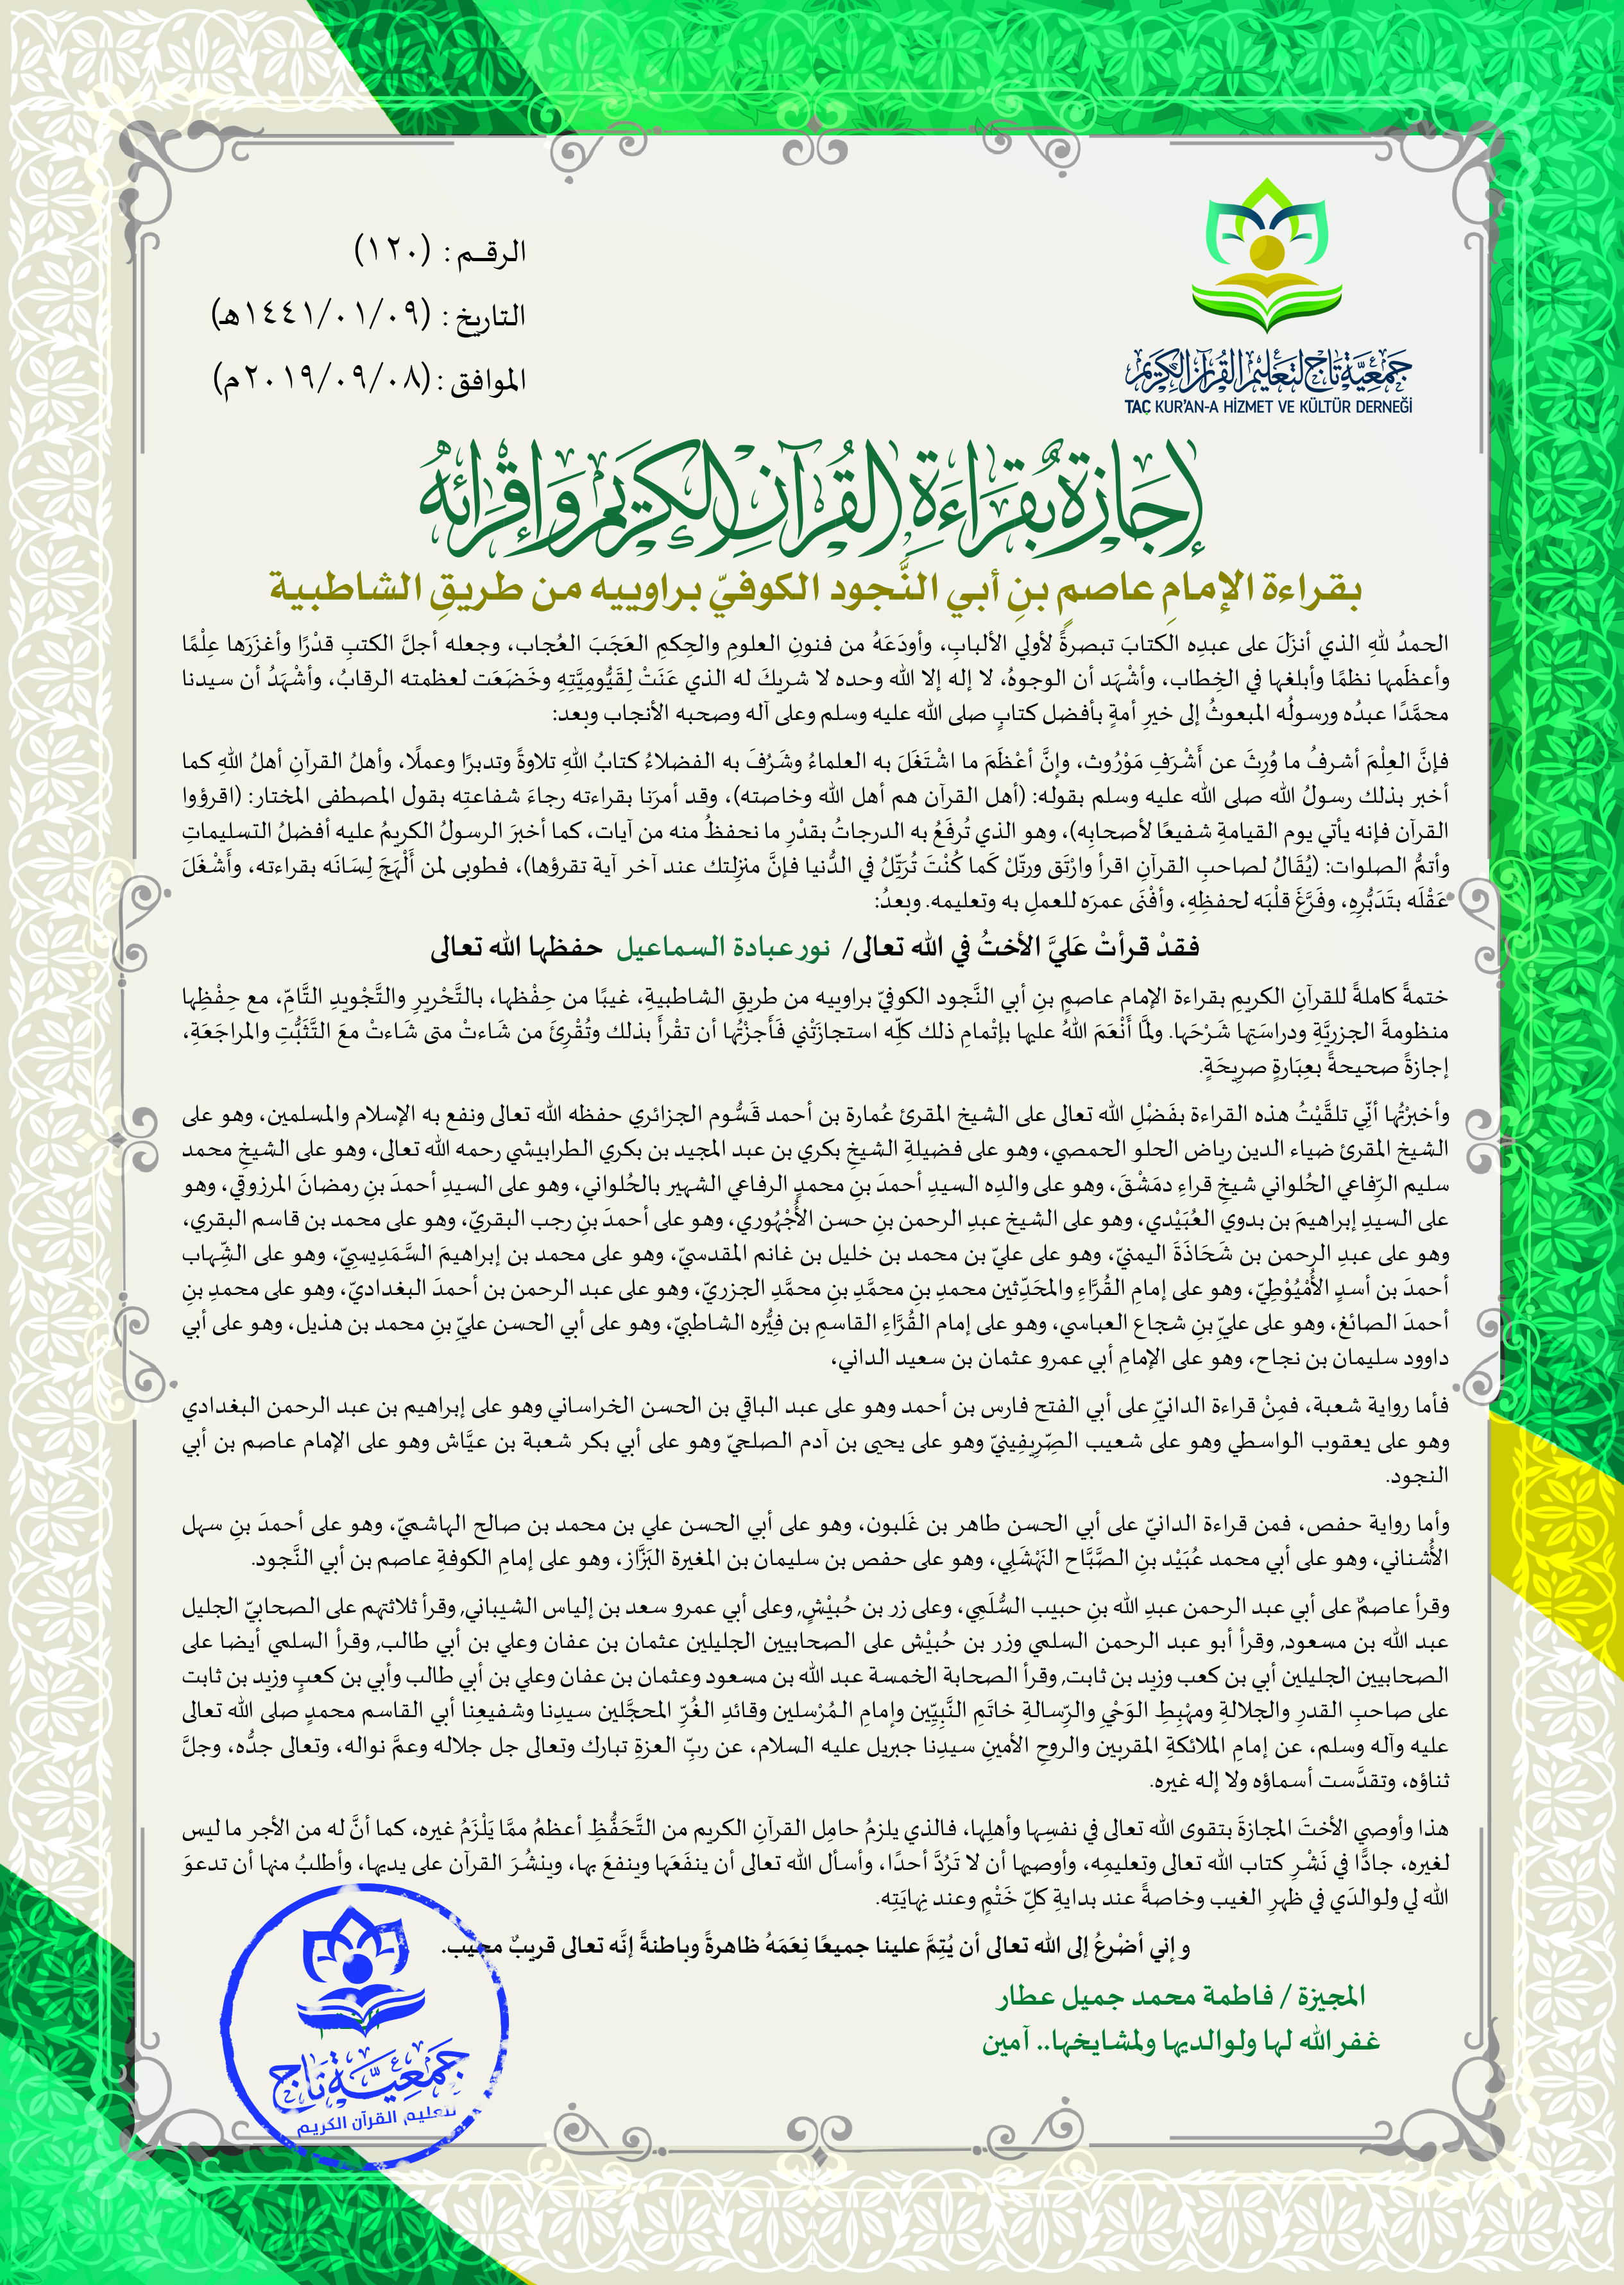 الرقـم : (١٢٠)
التاريخ : (١٤٤١/٠١/٠٩هـ)
الموافق : (٢٠١٩/٠٩/٠٨م)
جمعية تاج لتعليم القرآن الكريم
TAÇ KUR'AN-A HİZMET VE KÜLTÜR DERNEĞİ
إجازة بقراءة القرآن الكريم وإقرائه
بقراءة الإمامِ عاصمٍ بنِ أبي النَّجود الكوفيّ براوييه من طريقِ الشاطبية
الحمدُ للهِ الذي أنزَلَ على عبدِه الكتابَ تبصرةً لأولي الألبابِ، وأودَعَهُ من فنونِ العلومِ والحِكمِ العَجَبَ العُجاب، وجعله أجلَّ الكتبِ قدْرًا وأغزَرَها عِلْمًا
وأعظَمها نظمًا وأبلغها في الخِطاب، وأشْهَد أن الوجوهُ، لا إله إلا الله وحده لا شريكَ له الذي عَنَتْ لِقَيُّومِيَّتِهِ وخَضَعَت لعظمته الرقابُ، وأشْهَدُ أن سيدنا
محمَّدًا عبدُه ورسولُه المبعوثُ إلى خيرِ أمةٍ بأفضل كتابٍ صلى الله عليه وسلم وعلى آله وصحبه الأنجاب وبعد:
فإنَّ العِلْمَ أشرفُ ما وُرِثَ عن أَشْرَفِ مَوْرُوث، وإنَّ أعْظَمَ ما اشْتَغَلَ به العلماءُ وشَرُفَ به الفضلاءُ كتابُ اللهِ تلاوةً وتدبرًا وعملًا، وأهلُ القرآنِ أهلُ اللهِ كما
أخبر بذلك رسولُ الله صلى الله عليه وسلم بقوله: (أهل القرآن هم أهل الله وخاصته)، وقد أمرَنا بقراءته رجاءَ شفاعتِه بقول المصطفى المختار: (اقرؤوا
القرآن فإنه يأتي يوم القيامةِ شفيعًا لأصحابِه)، وهو الذي تُرفَعُ به الدرجاتُ بقدْرِ ما نحفظُ منه من آيات، كما أخبرَ الرسولُ الكريمُ عليه أفضلُ التسليماتِ
وأتمُّ الصلوات: (يُقَالُ لصاحبِ القرآنِ اقرأ وارْتَق ورتّلْ كَما كُنْتَ تُرَتِّلُ في الدُّنيا فإنَّ منزِلتك عند آخر آية تقرؤها)، فطوبى لمن أَلْهَجَ لِسَانَه بقراءته، وأَشْغَلَ
عَقْلَه بتَدَبُّرِهِ، وفَرَّغَ قلْبَه لحفظِهِ، وأفْنَى عمرَه للعملِ به وتعليمه. وبعدُ:
فقدْ قرأتْ عَليَّ الأختُ في الله تعالى/ نور عبادة السماعيل حفظها الله تعالى
ختمةً كاملةً للقرآنِ الكريمِ بقراءة الإمام عاصمٍ بنِ أبي النَّجود الكوفيّ براوييه من طريقِ الشاطبيةِ، غيبًا من حِفْظها، بالتَّحْريرِ والتَّجْويدِ التَّامّ، مع حِفْظِها
منظومةَ الجزريَّةِ ودراسَتِها شَرْحَها. ولمَّا أَنْعَمَ اللهُ عليها بإتْمامِ ذلك كلّه استجازَتْني فَأَجزْتُها أن تقْرأَ بذلك وتُقْرِئَ من شَاءتْ متى شَاءتْ معَ التَّثَبُّتِ والمراجَعَةِ،
إجازةً صحيحةً بعِبَارةٍ صرِيحَةٍ.
وأخبرْتُها أنّي تلقَّيْتُ هذه القراءة بفَضْلِ الله تعالى على الشيخ المقرئ عُمارة بن أحمد قَسُّوم الجزائري حفظه الله تعالى ونفع به الإسلام والمسلمين، وهو على
الشيخ المقرئ ضياء الدين رياض الحلو الحمصي، وهو على فضيلةِ الشيخِ بكري بن عبد المجيد بن بكري الطرابيشي رحمه الله تعالى، وهو على الشيخِ محمد
سليم الرِّفاعي الحُلواني شيخِ قراءِ دمَشْقَ، وهو على والدِه السيدِ أحمدَ بنِ محمدٍ الرفاعي الشهير بالحُلواني، وهو على السيدِ أحمدَ بنِ رمضانَ المرزوقي، وهو
على السيدِ إبراهيمَ بن بدوي العُبَيْدي، وهو على الشيخ عبدِ الرحمن بنِ حسن الأُجْهُوري، وهو على أحمدَ بنِ رجب البقريّ، وهو على محمد بن قاسم البقري،
وهو على عبدِ الرحمن بن شَحَاذَةَ اليمنيّ، وهو على عليّ بن محمد بن خليل بن غانم المقدسيّ، وهو على محمد بن إبراهيمَ السَّمَدِيسِيّ، وهو على الشِّهاب
أحمدَ بن أسدٍ الأُمْيُوْطِيّ، وهو على إمامِ القُرَّاءِ والمحَدِّثين محمدِ بنِ محمَّدِ بنِ محمَّدٍ الجزريّ، وهو على عبد الرحمن بن أحمدَ البغداديّ، وهو على محمدِ بنِ
أحمدَ الصائغ، وهو على عليّ بنِ شجاع العباسي، وهو على إمام القُرَّاءِ القاسمِ بن فِيُّرّه الشاطبيّ، وهو على أبي الحسن عليّ بنِ محمد بن هذيل، وهو على أبي
داوود سليمان بن نجاح، وهو على الإمامِ أبي عمرو عثمان بن سعيد الداني،
فأما رواية شعبة، فمِنْ قراءة الدانيّ على أبي الفتح فارس بن أحمد وهو على عبد الباقي بن الحسن الخراساني وهو على إبراهيم بن عبد الرحمن البغدادي
وهو على يعقوب الواسطي وهو على شعيب الصِّرِيفِينيّ وهو على يحيى بن آدم الصلحيّ وهو على أبي بكر شعبة بن عيَّاش وهو على الإمام عاصم بن أبي
النجود.
وأما رواية حفص، فمن قراءة الدانيّ على أبي الحسن طاهر بن غَلبون، وهو على أبي الحسن علي بن محمد بن صالح الهاشميّ، وهو على أحمدَ بنِ سهل
الأُشناني، وهو على أبي محمد عُبَيْد بنِ الصَّبَّاح النَهْشَلِي، وهو على حفص بن سليمان بن المغيرة البَزَّاز، وهو على إمامِ الكوفةِ عاصم بن أبي النَّجود.
وقرأ عاصمٌ على أبي عبد الرحمن عبدِ الله بنِ حبيب السُّلَمِي، وعلى زر بن حُبيْشٍ, وعلى أبي عمرو سعد بن إلياس الشيباني, وقرأ ثلاثتهم على الصحابيّ الجليل
عبد الله بن مسعود, وقرأ أبو عبد الرحمن السلمي وزر بن حُبيْش على الصحابيين الجليلين عثمان بن عفان وعلي بن أبي طالب, وقرأ السلمي أيضا على
الصحابيين الجليلين أبي بن كعب وزيد بن ثابت, وقرأ الصحابة الخمسة عبد الله بن مسعود وعثمان بن عفان وعلي بن أبي طالب وأبي بن كعبٍ وزيد بن ثابت
على صاحبِ القدرِ والجلالةِ ومهْبِطِ الوَحْيِ والرِّسالةِ خاتَمِ النَّبِيِّين وإمامِ المُرْسلين وقائدِ الغُرِّ المحجَّلين سيدِنا وشفيعِنا أبي القاسم محمدٍ صلى الله تعالى
عليه وآله وسلم، عن إمامِ الملائكةِ المقربين والروحِ الأمينِ سيدِنا جبريل عليه السلام، عن ربِّ العزةِ تبارك وتعالى جل جلاله وعمَّ نواله، وتعالى جدُّه، وجلَّ
ثناؤه، وتقدَّست أسماؤه ولا إله غيره.
هذا وأوصي الأختَ المجازةَ بتقوى الله تعالى في نفسِها وأهلِها، فالذي يلزمُ حامِل القرآنِ الكريم من التَّحَفُّظِ أعظمُ ممَّا يَلْزَمُ غيره، كما أنَّ له من الأجر ما ليس
لغيره، جادًّا في نَشْرِ كتاب الله تعالى وتعليمِه، وأوصيها أن لا تَرُدَّ أحدًا، وأسأل الله تعالى أن ينفَعَها وينفعَ بها، وينشُرَ القرآن على يديها، وأطلبُ منها أن تدعوَ
الله لي ولوالدَي في ظهرِ الغيب وخاصةً عند بدايةِ كلّ خَتْمٍ وعند نِهايَتِه.
و إني أضْرعُ إلى الله تعالى أن يُتِمَّ علينا جميعًا نِعَمَهُ ظاهرةً وباطنةً إنَّه تعالى قريبٌ مجيب.
المجيزة / فاطمة محمد جميل عطار
غفر الله لها ولوالديها ولمشايخها.. آمين
جمعية تاج
لتعليم القرآن الكريم